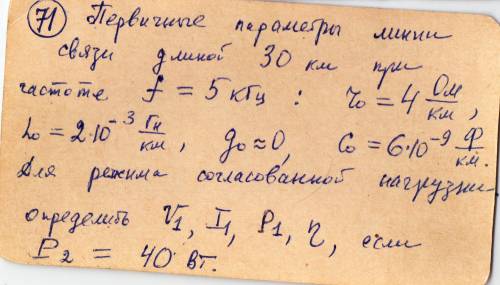 71 Первичные параметры линии
связи длиной 30 км при
частоте f = 5 кГц : r₀ = 4 Ом/км,
L₀ = 2·10⁻³ Гн/км, g₀ ≈ 0, C₀ = 6·10⁻⁹ Ф/км.
Для режима согласованной нагрузки
определить U₁, I₁, P₁, η, если
P₂ = 40 вт.